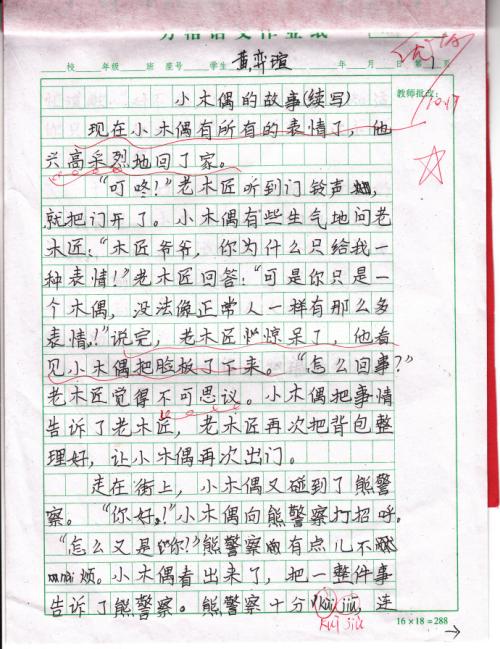 方格语文作业纸
校 年级 班 座号 学生 黄弈瑄 年 月 日 第 1 页
小木偶的故事(续写)
教师批改:
10.17
现在小木偶有所有的表情了，他
兴高采烈地回了家。
"叮咚!"老木匠听到门铃声,
就把门开了。小木偶有些生气地问老
木匠:"木匠爷爷，你为什么只给我一
种表情!"老木匠回答:"可是你只是一
个木偶，没法像正常人一样有那么多
表情!"说完，老木匠惊呆了，他看
见小木偶把脸板了下来。"怎么回事?"
老木匠觉得不可思议。小木偶把事情
告诉了老木匠，老木匠再次把背包整
理好，让小木偶再次出门。
走在街上，小木偶又碰到了熊警
察。"你好!"小木偶向熊警察打招呼。
"怎么又是你?"熊警察有点儿不
nai烦。小木偶看出来了，把一整件事
告诉了熊警察。熊警察十分kui jiu，连
kui jiu
16×18=288
→